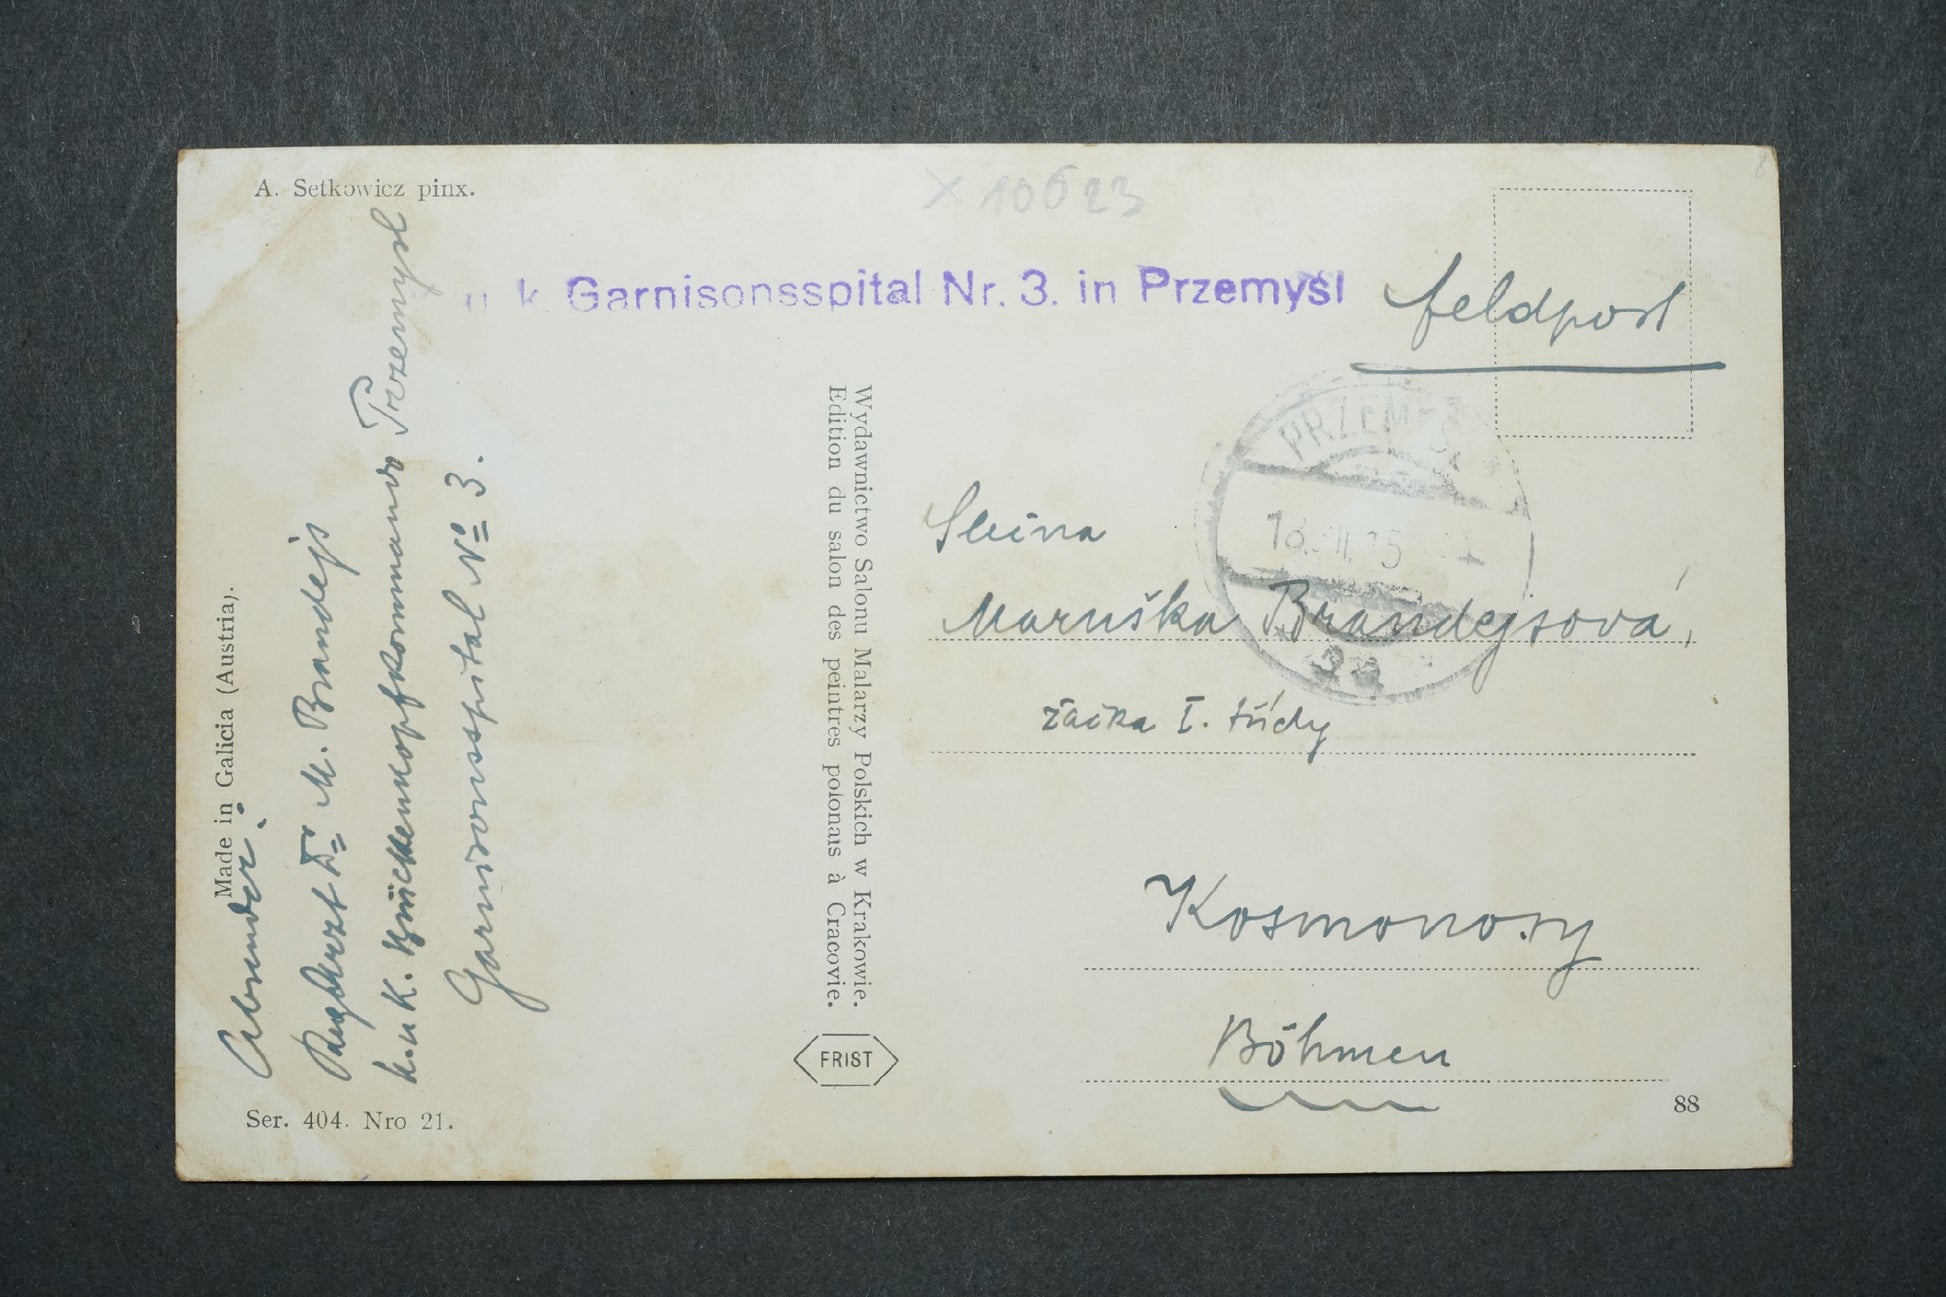 A. Setkowicz pinx.
X 10623
u. k. Garnisonsspital Nr. 3. in Przemyśl
feldpost
Absender:
M. Brandejs
k. u K. Brückenkopfkommando Przemysl
Garnisonsspital No 3.
Made in Galicia (Austria).
Ser. 404. Nro 21.
Wydawnictwo Salonu Malarzy Polskich w Krakowie.
Edition du salon des peintres polonais à Cracovie.
FRIST
PRZEMYŚL
Slečna
Maruška Brandejsová,
žačka I. třídy
Kosmonosy
Böhmen
88